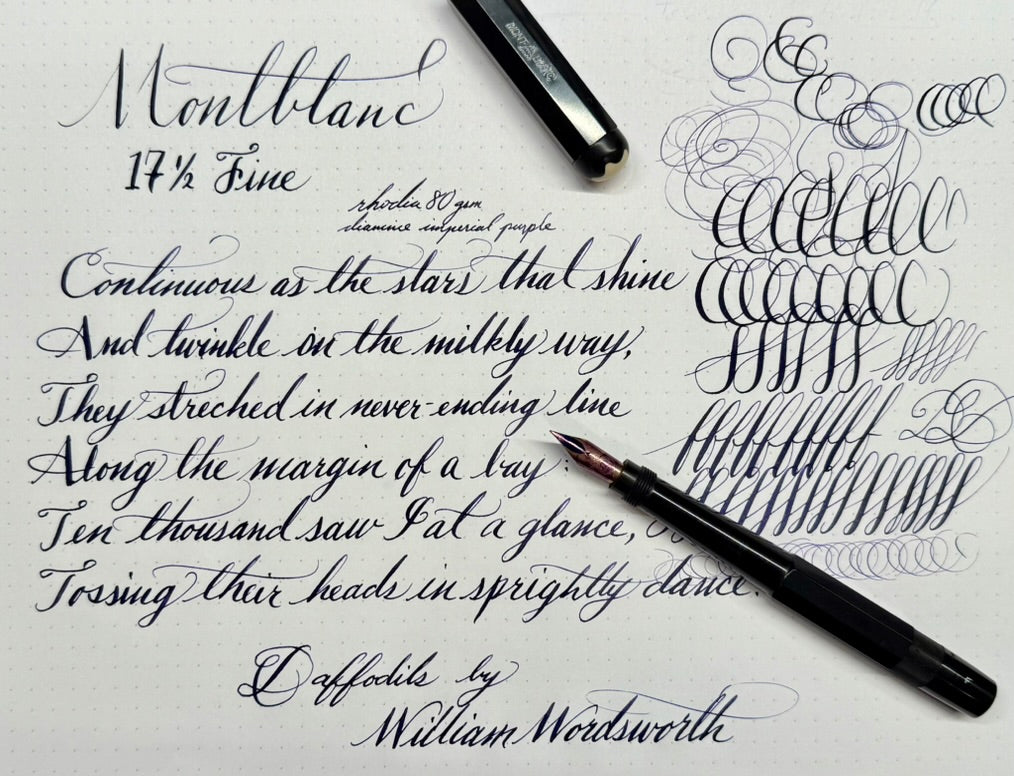 Montblanc
17½ Fine
rhodia 80 gsm
diamine imperial purple
Continuous as the stars that shine
And twinkle on the milkly way,
They streched in never-ending line
Along the margin of a bay:
Ten thousand saw I at a glance,
Tossing their heads in sprightly dance.
Daffodils by
William Wordsworth
MONTBLANC